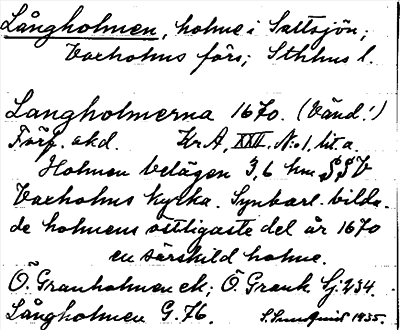 Långholmen, holme i Saltsjön;
Vaxholms förs; Sthlms l.
Langholmerna 1670. (Vänd!)
Förf. akd. Kr. A, XXII. N:o 1, lit. a.
Holmen belägen 3,6 km SSV
Vaxholms kyrka. Synbarl. bilda-
de holmens västligaste del år 1670
en särskild holme.
Ö. Granholmen ek; Ö. Grank Sj. 234.
Långholmen G. 76. 1935.